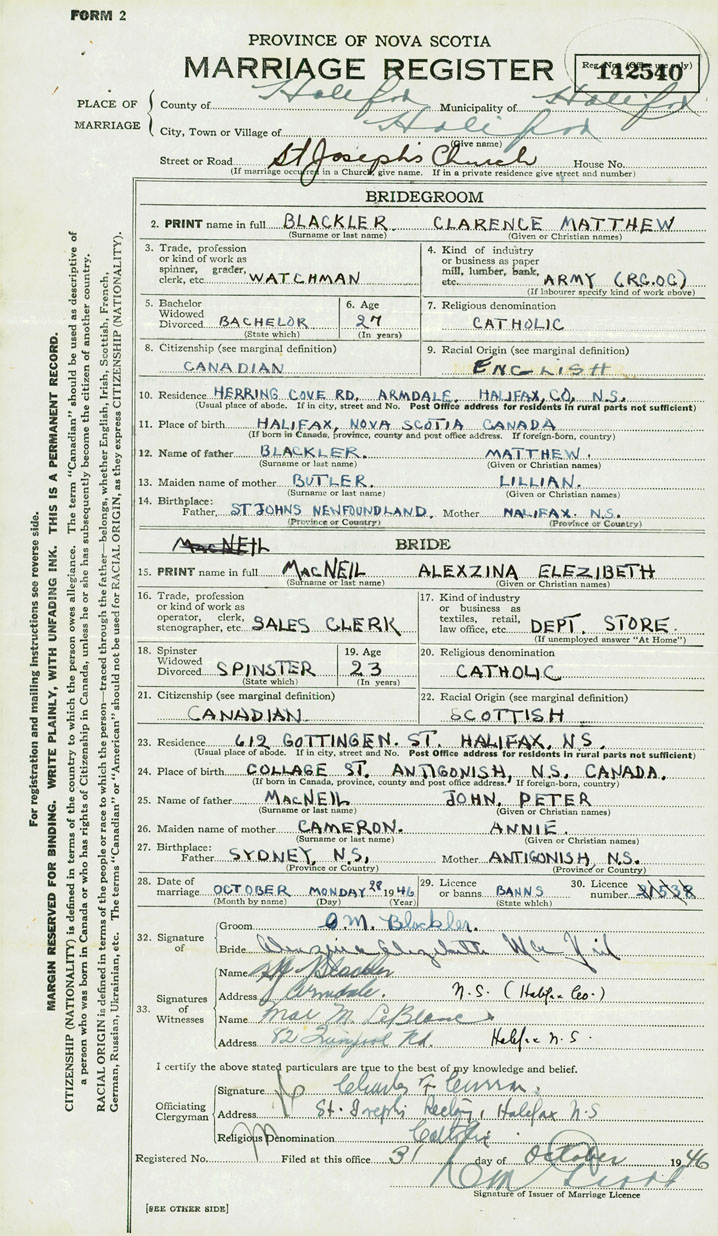 FORM 2
PROVINCE OF NOVA SCOTIA
MARRIAGE REGISTER
Reg. No. (Office use only)
142540
PLACE OF MARRIAGE
County of Halifax Municipality of Halifax
City, Town or Village of Halifax
(Give name)
Street or Road St Joseph's Church House No.
(If marriage occurred in a Church, give name. If in a private residence give street and number)
BRIDEGROOM
2. PRINT name in full BLACKLER CLARENCE MATTHEW
(Surname or last name) (Given or Christian names)
3. Trade, profession or kind of work as spinner, grader, clerk, etc. WATCHMAN
4. Kind of industry or business as paper mill, lumber, bank, etc. ARMY (RC.OC)
(If labourer specify kind of work above)
5. Bachelor Widowed Divorced BACHELOR
(State which)
6. Age 27
(In years)
7. Religious denomination
CATHOLIC
8. Citizenship (see marginal definition)
CANADIAN
9. Racial Origin (see marginal definition)
ENGLISH
10. Residence HERRING COVE RD. ARMDALE. HALIFAX, CO, N.S.
(Usual place of abode. If in city, street and No. Post Office address for residents in rural parts not sufficient)
11. Place of birth HALIFAX, NOVA SCOTIA CANADA
(If born in Canada, province, county and post office address. If foreign-born, country)
12. Name of father BLACKLER. MATTHEW.
(Surname or last name) (Given or Christian names)
13. Maiden name of mother BUTLER. LILLIAN.
(Surname or last name) (Given or Christian names)
14. Birthplace: Father ST JOHNS NEWFOUNDLAND. Mother HALIFAX. N.S.
(Province or Country) (Province or Country)
MacNEIL
BRIDE
15. PRINT name in full MacNEIL ALEXZINA ELEZIBETH
(Surname or last name) (Given or Christian names)
16. Trade, profession or kind of work as operator, clerk, stenographer, etc. SALES CLERK
17. Kind of industry or business as textiles, retail, law office, etc. DEPT. STORE.
(If unemployed answer "At Home")
18. Spinster Widowed Divorced SPINSTER
(State which)
19. Age 23
(In years)
20. Religious denomination
CATHOLIC
21. Citizenship (see marginal definition)
CANADIAN.
22. Racial Origin (see marginal definition)
SCOTTISH
23. Residence 612 GOTTINGEN. ST. HALIFAX, N.S.
(Usual place of abode. If in city, street and No. Post Office address for residents in rural parts not sufficient)
24. Place of birth COLLAGE ST. ANTIGONISH, N.S. CANADA.
(If born in Canada, province, county and post office address. If foreign-born, country)
25. Name of father MacNEIL JOHN. PETER
(Surname or last name) (Given or Christian names)
26. Maiden name of mother CAMERON. ANNIE.
(Surname or last name) (Given or Christian names)
27. Birthplace: Father SYDNEY, N.S, Mother ANTIGONISH, N.S.
(Province or Country) (Province or Country)
28. Date of marriage OCTOBER MONDAY 28 1946
(Month by name) (Day) (Year)
29. Licence or banns BANNS
(State which)
30. Licence number 21538
32. Signature of
Groom C. M. Blackler.
Bride Alexzina Elizabeth MacNeil
33. Signatures of Witnesses
Name Blackler
Address Armdale. N.S. (Halifax Co.)
Name Mae M. LeBlanc
Address 82 Liverpool Rd. Halifax N.S.
I certify the above stated particulars are true to the best of my knowledge and belief.
Officiating Clergyman
Signature Charles F. Curran.
Address St. Josephs Rectory, Halifax N.S
Religious Denomination Catholic
Registered No. Filed at this office 31 day of October 1946
Signature of Issuer of Marriage Licence
[SEE OTHER SIDE]
For registration and mailing instructions see reverse side.
MARGIN RESERVED FOR BINDING. WRITE PLAINLY, WITH UNFADING INK. THIS IS A PERMANENT RECORD.
CITIZENSHIP (NATIONALITY) is defined in terms of the country to which the person owes allegiance. The term "Canadian" should be used as descriptive of
a person who was born in Canada or who has rights of Citizenship in Canada, unless he or she has subsequently become the citizen of another country.
RACIAL ORIGIN is defined in terms of the people or race to which the person—traced through the father—belongs, whether English, Irish, Scottish, French,
German, Russian, Ukrainian, etc. The terms "Canadian" or "American" should not be used for RACIAL ORIGIN, as they express CITIZENSHIP (NATIONALITY).